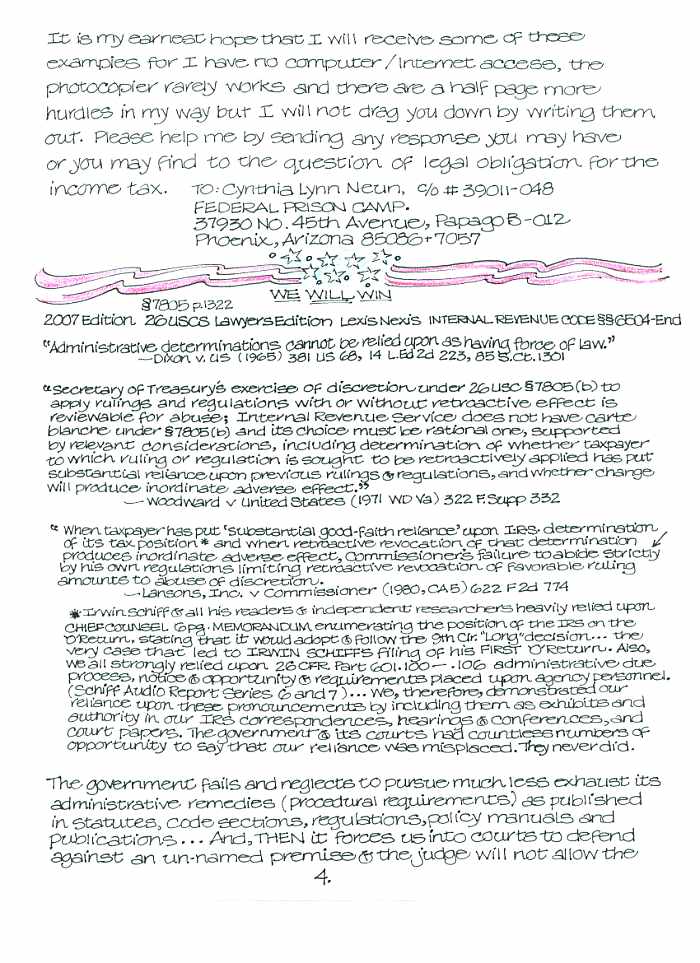 It is my earnest hope that I will receive some of those
examples for I have no computer/Internet access, the
photocopier rarely works and there are a half page more
hurdles in my way but I will not drag you down by writing them
out. Please help me by sending any response you may have
or you may find to the question of legal obligation for the
income tax. TO: Cynthia Lynn Neun, c/o # 39011-048
FEDERAL PRISON CAMP.
37930 NO. 45th Avenue, Papago B-012
Phoenix, Arizona 85086+7057
WE WILL WIN
§7805 p.1322
2007 Edition 26 USCS Lawyers Edition Lexis Nexis INTERNAL REVENUE CODE §§6504-End
"Administrative determinations cannot be relied upon as having force of law."
—Dixon v. US (1965) 381 US 68, 14 L.Ed 2d 223, 85 S.Ct. 1301
"Secretary of Treasury's exercise of discretion under 26 USC §7805(b) to
apply rulings and regulations with or without retroactive effect is
reviewable for abuse; Internal Revenue Service does not have carte
blanche under §7805(b) and its choice must be rational one, supported
by relevant considerations, including determination of whether taxpayer
to which ruling or regulation is sought to be retroactively applied has put
substantial reliance upon previous rulings & regulations, and whether change
will produce inordinate adverse effect."
— Woodward v United States (1971 WD Va) 322 F. Supp 332
" When taxpayer has put 'substantial good-faith reliance' upon IRS. determination
of its tax position* and when retroactive revocation of that determination
produces inordinate adverse effect, Commissioner's failure to abide strictly
by his own regulations limiting retroactive revocation of favorable ruling
amounts to abuse of discretion.
—Lansons, Inc. v Commissioner (1980, CA5) 622 F 2d 774
* Irwin Schiff & all his readers & independent researchers heavily relied upon
CHIEF COUNSEL 6 pg. MEMORANDUM enumerating the position of the IRS on the
O'Return, stating that it would adopt & follow the 9th Cir. "Long" decision... the
very case that led to IRWIN SCHIFFS filing of his FIRST O'Return. Also,
we all strongly relied upon 26 CFR Part 601.100 — .106 administrative due
process, notice & opportunity & requirements placed upon agency personnel.
(Schiff Audio Report Series 6 and 7)... We, therefore, demonstrated our
reliance upon these pronouncements by including them as exhibits and
authority in our IRS correspondences, hearings & conferences, and
court papers. The government & its courts had countless numbers of
opportunity to say that our reliance was misplaced. They never did.
The government fails and neglects to pursue much less exhaust its
administrative remedies (procedural requirements) as published
in statutes, code sections, regulations, policy manuals and
publications... And, THEN it forces us into courts to defend
against an un-named premise & the judge will not allow the
4.